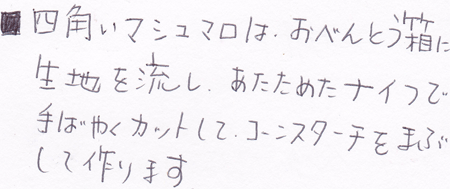 ■四角いマシュマロは、おべんとう箱に
生地を流し、あたためたナイフで
手ばやくカットして、コーンスターチをまぶ
して作ります